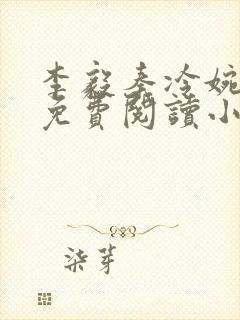 李毅秦冷婉
免費閱讀小
柒芽